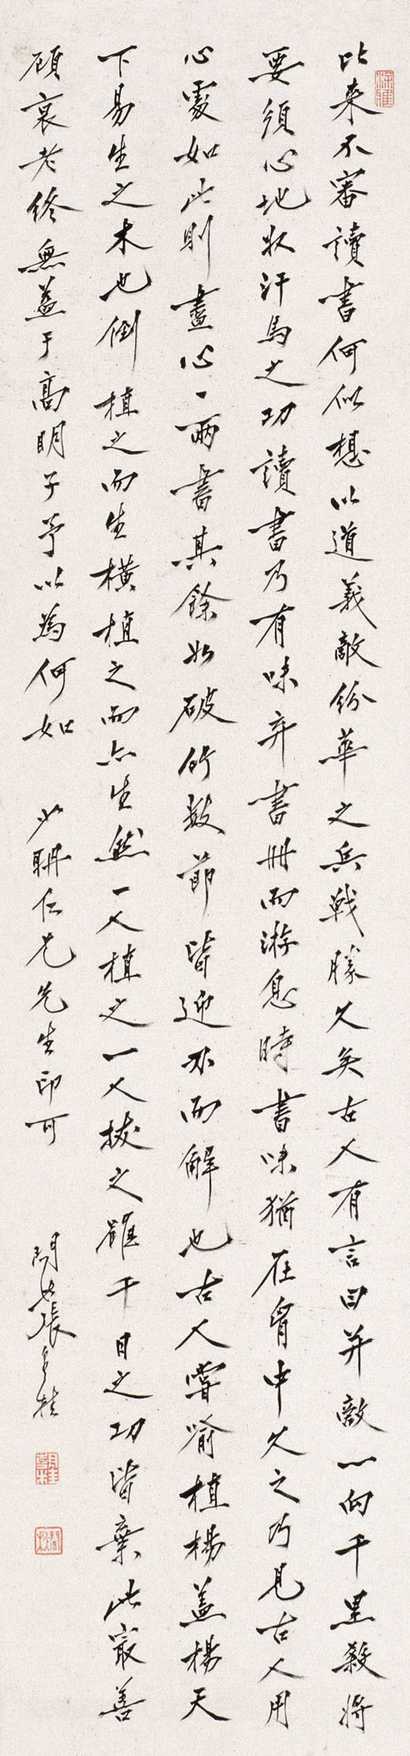 比来不審讀書何似想以道義敵紛華之兵戰勝久矣古人有言曰并敵一向千里殺將
要須心地收汗馬之功讀書乃有味弃書冊而游息時書味猶在胷中久之乃見古人用
心處如此則盡心一兩書其餘如破竹數節皆迎刃而解也古人嘗喻植楊蓋楊天
下易生之木也倒植之而生横植之而亦生然一人植之一人拔之雖千日之功皆棄此最善
顧衰老終無益于高明子予以為何如 少耼仁兄先生印可 張